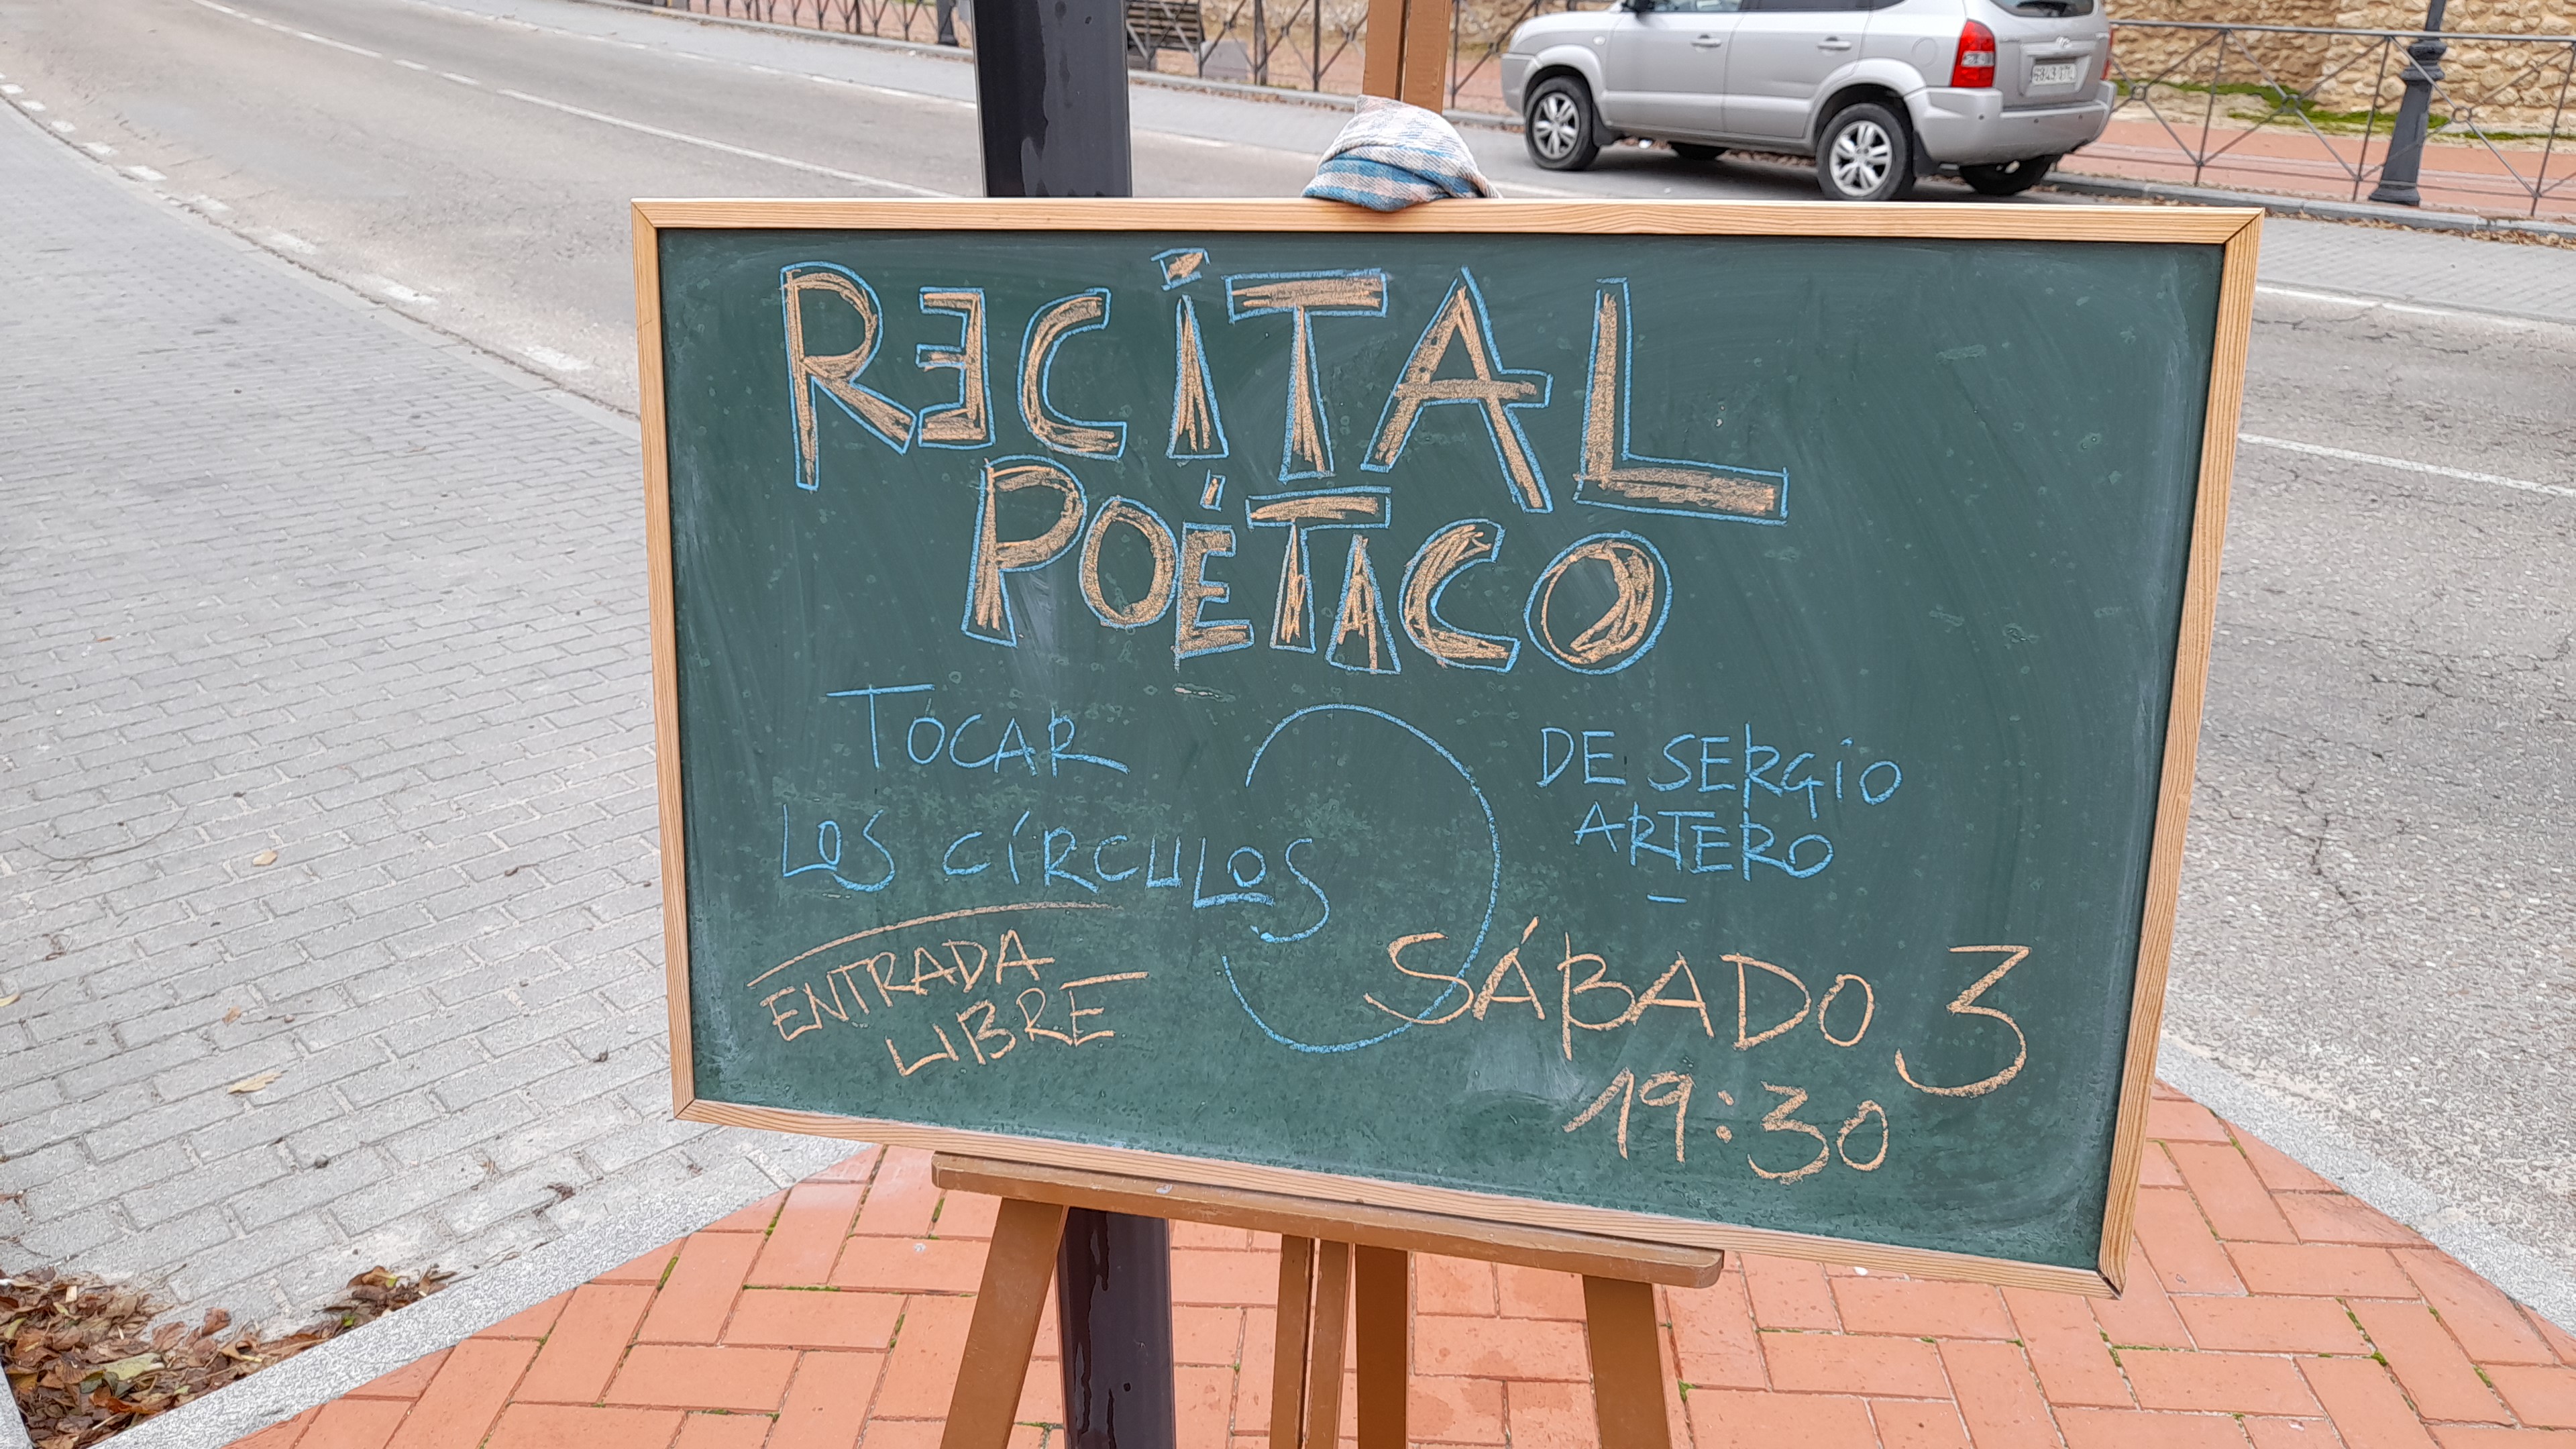 RECiTAL
POÉTICO
TOCAR
LOS CÍRCULOS
DE SERGiO
ARTERO
ENTRADA
LIBRE
SÁBADO 3
19:30